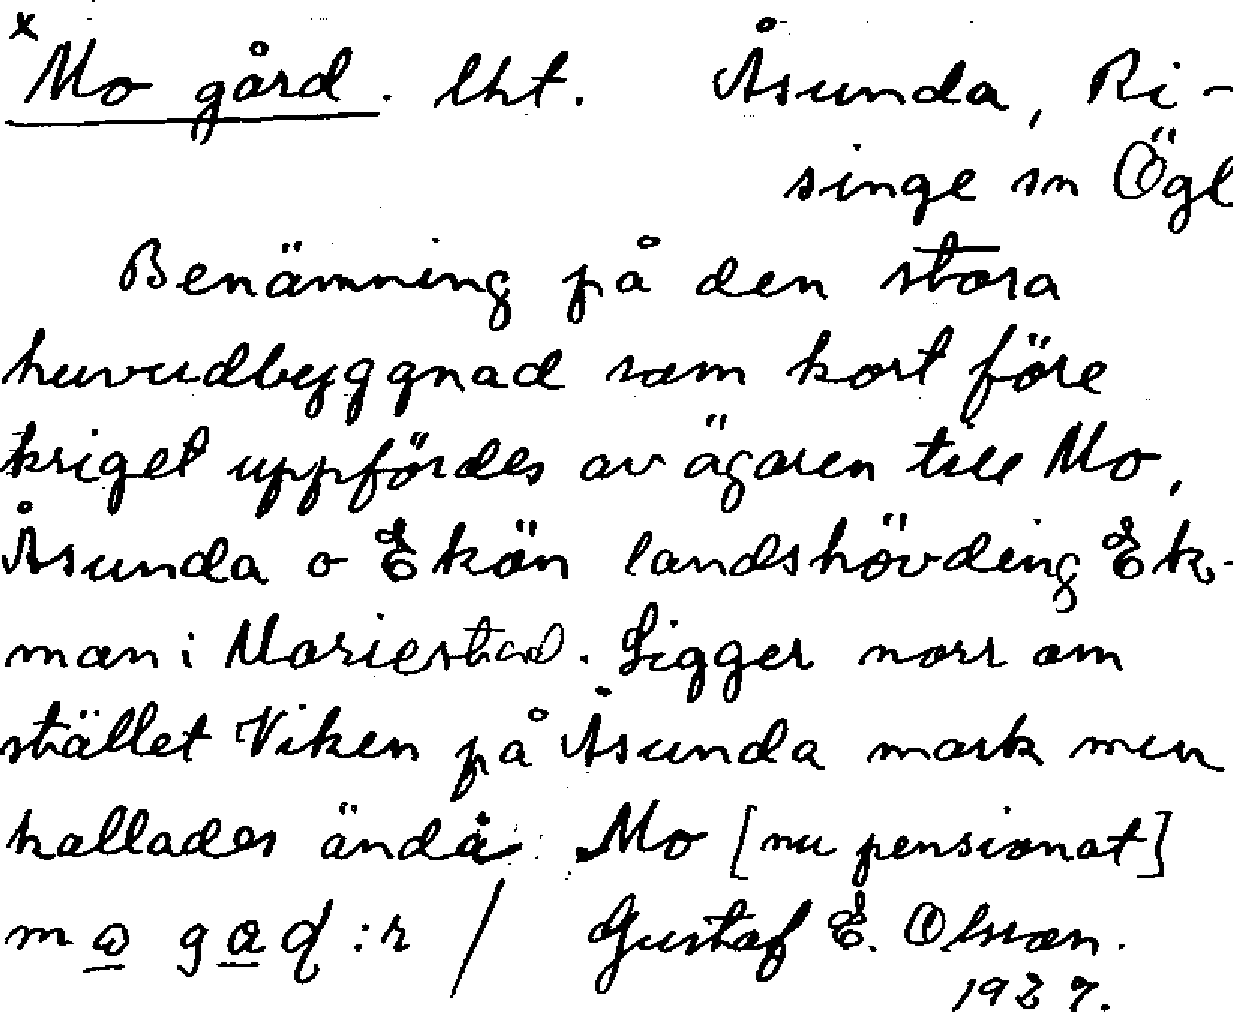 x
Mo gård. lht. Åsunda, Ri-
singe sn Ögl
Benämning på den stora
huvudbyggnad som kort före
kriget uppfördes av ägaren till Mo,
Åsunda o Ekön landshövding Ek-
man i Mariestad. Ligger norr om
stället Viken på Åsunda mark men
kallades ändå Mo [nu pensionat]
Gustaf E. Olsson.
1937.